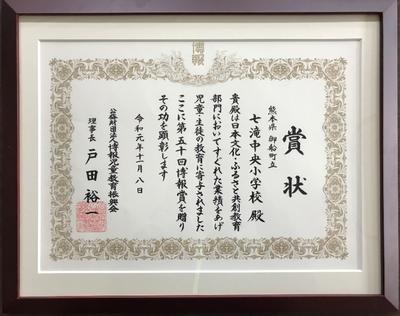 博報
賞状
熊本県 御船町立
七滝中央小学校 殿
貴殿は日本文化・ふるさと共創教育
部門においてすぐれた業績をあげ
児童・生徒の教育に寄与されました
ここに第五十回博報賞を贈り
その功を顕彰します
令和元年十一月八日
公益財団法人博報児童教育振興会
理事長 戸田裕一